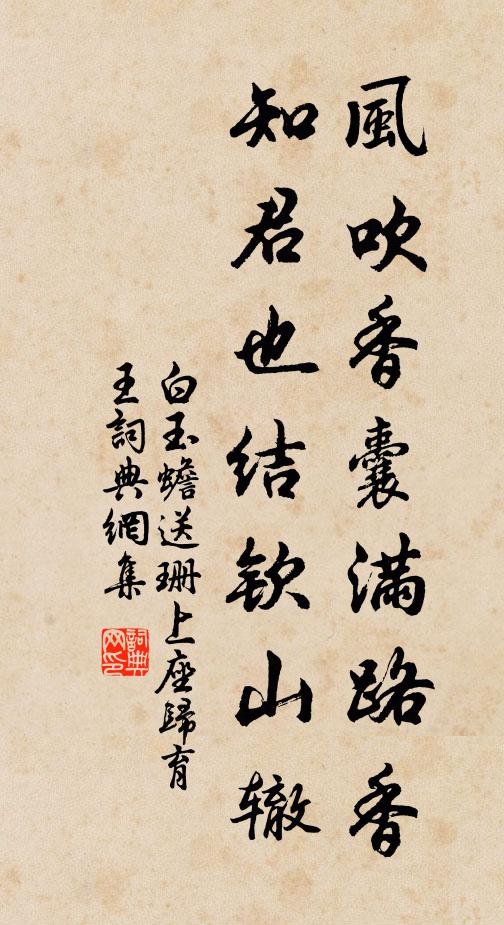 風吹香囊滿路香
知君也結欽山辙
白玉蟾送珊上座歸育
王詞典網集
詞典
网印